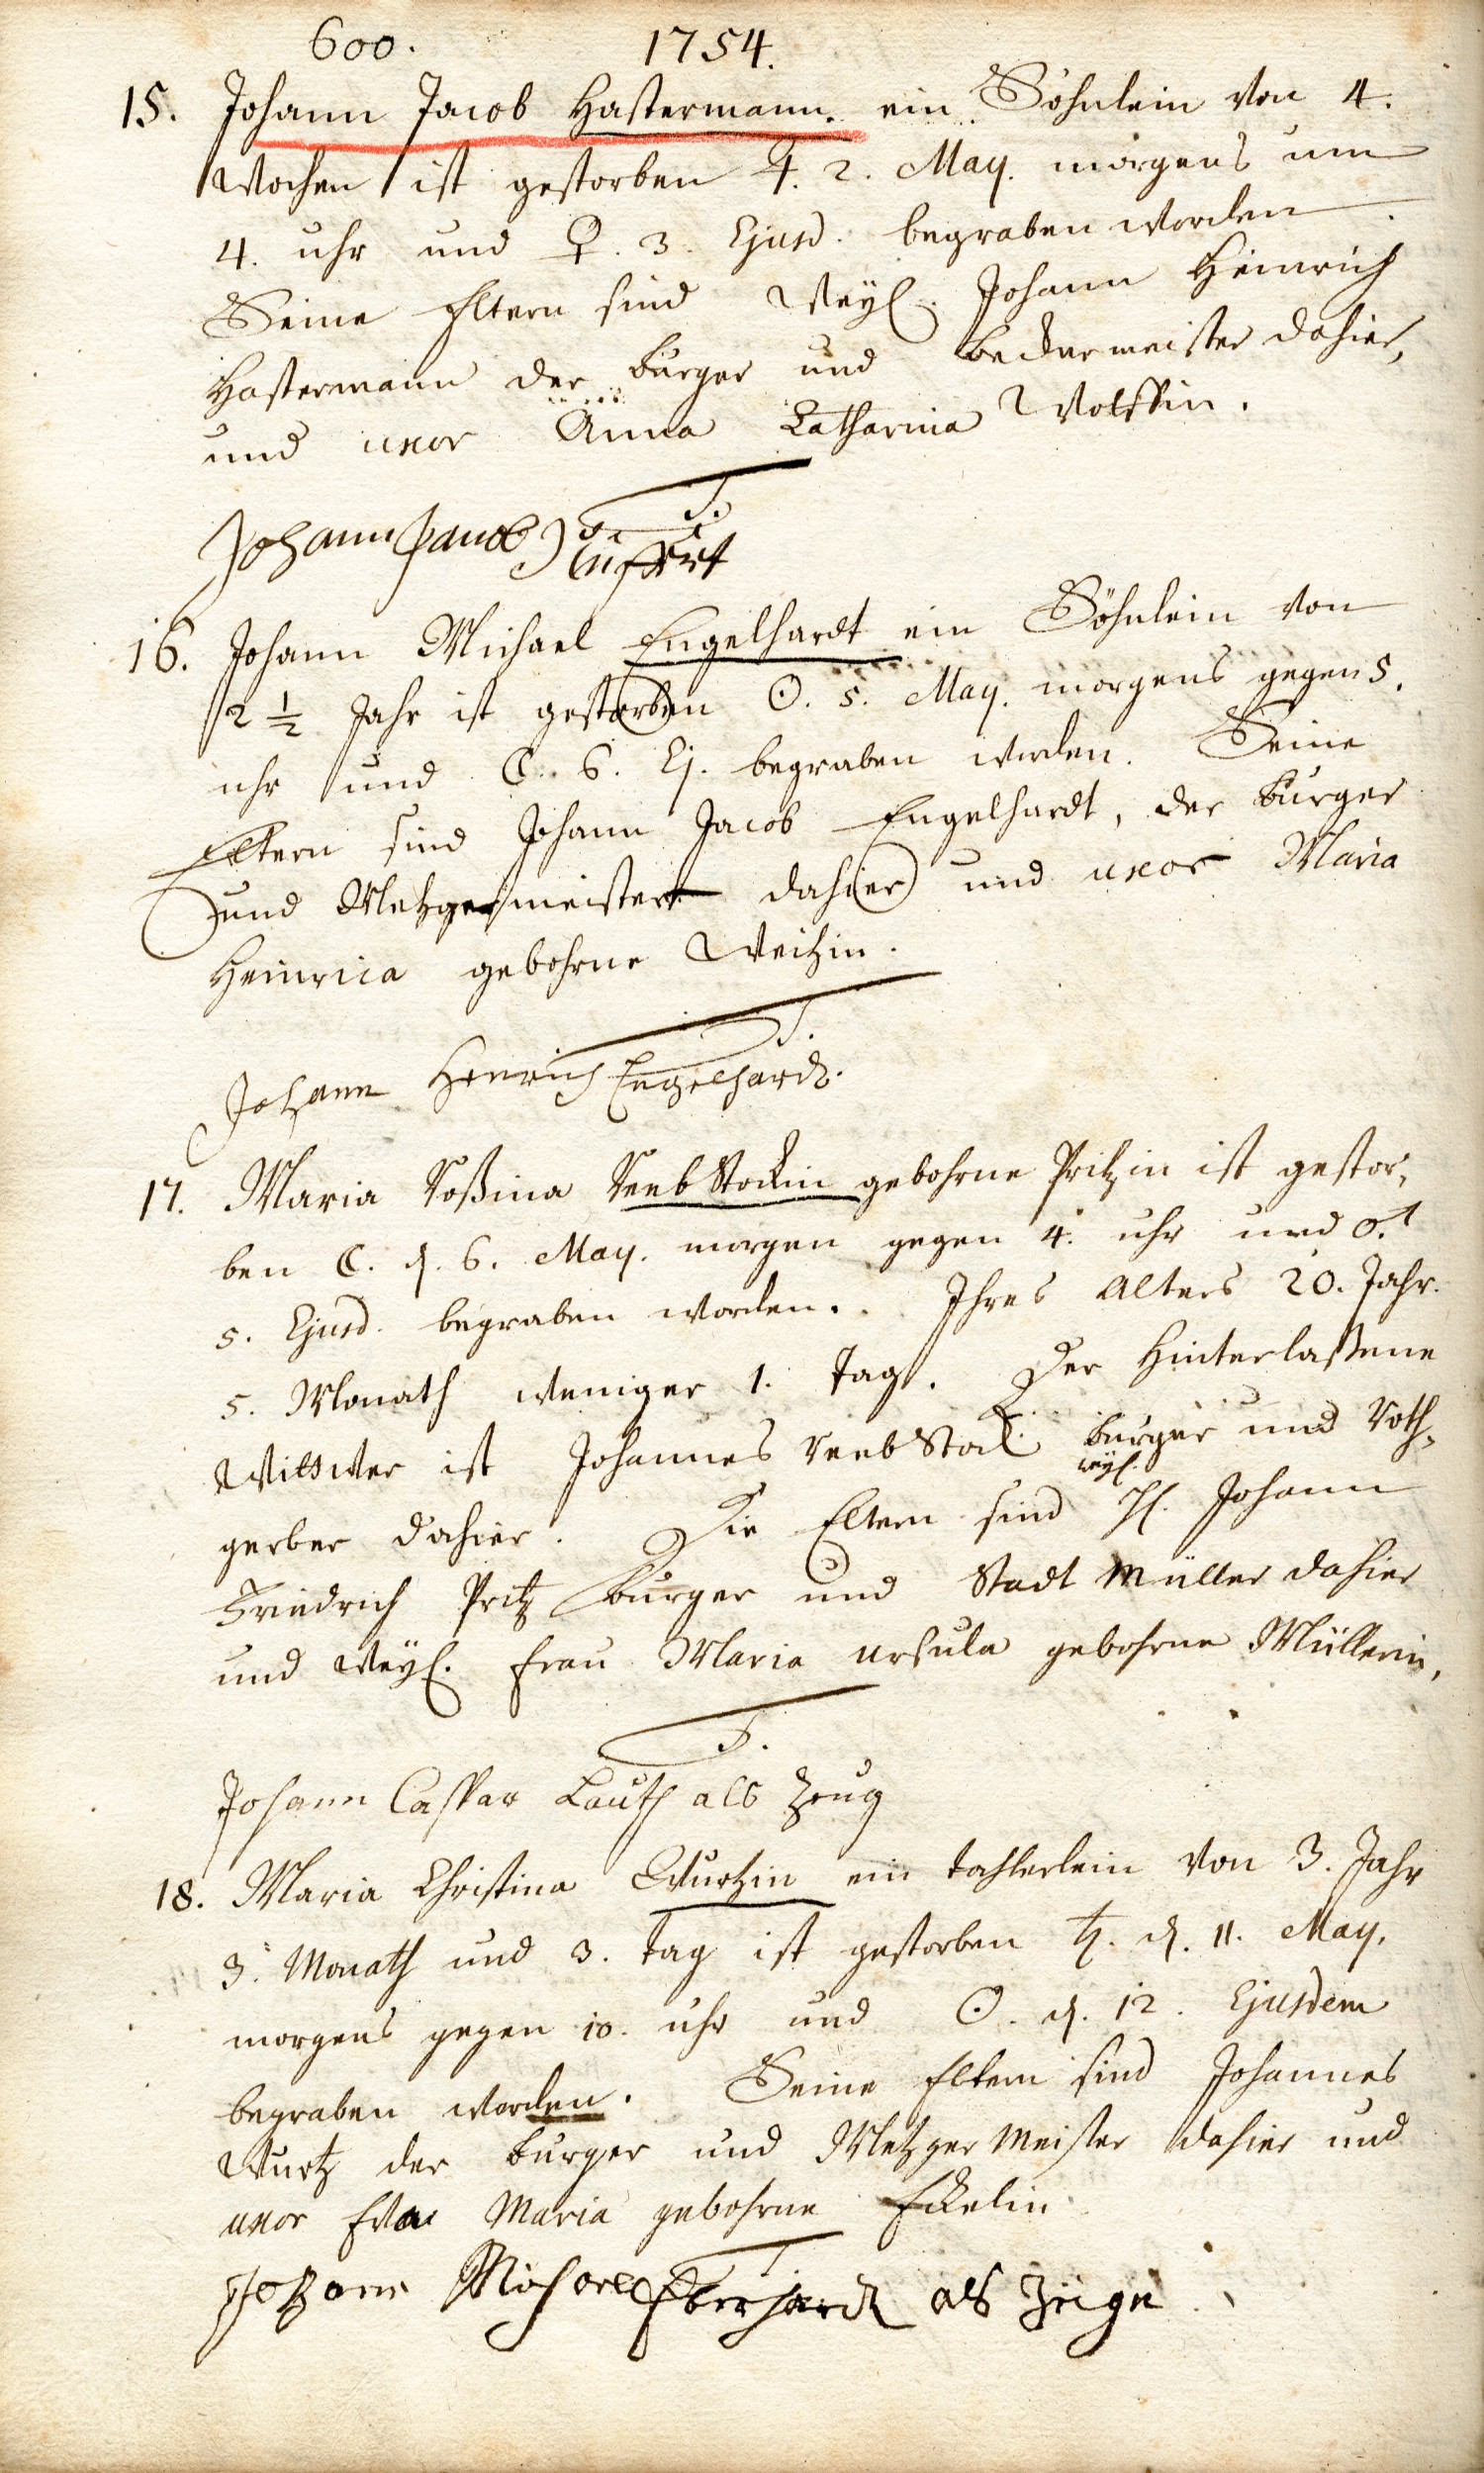 600. 1754.
15. Johann Jacob Hastermann. ein Söhnlein von 4.
Wochen ist gestorben ♃. 2. May. morgens um
4. uhr und ♀. 3. Ejusd. begraben worden.
Seine Eltern sind Weyl. Johann Heinrich
Hastermann der burger und beckermeister dahier,
und uxor Anna Catharina Wolffin.
Johann Jacob
16. Johann Michael Engelhardt ein Söhnlein von
2 ½ Jahr ist gestorben ☉. 5. May. morgens gegen 5.
uhr und ☾. 6. Ej. begraben worden. Seine
Eltern sind Johann Jacob Engelhardt, der burger
und Metzgermeister dahier und uxor Maria
Heinrica gebohrne Weitzin.
Johann Henrich Engelhard.
17. Maria Roßina Reebstockin gebohrne Pritzin ist gestor,
ben ☾. d. 6. May. morgen gegen 4. uhr und ♂.
5. Ejusd. begraben worden. Ihres Alters 20. Jahr.
5. Monath weniger 1. Tag. Der Hinterlaßene
Wittwer ist Johannes Reebstock burger und Roth,
gerber dahier. Die Eltern sind weyl. H. Johann
Friedrich Pritz burger und Stadt Müller dahier
und Weyl. Frau Maria Ursula gebohrne Müllerin,
Johann Caspar Lauth als Zeug
18. Maria Christina Wurtzin ein tochterlein von 3. Jahr
3. Monath und 3. tag ist gestorben ♄. d. 11. May.
morgens gegen 10. uhr und ☉. d. 12. Ejusdem
begraben worden. Seine Eltern sind Johannes
Wurtz der burger und Metzger Meister dahier und
uxor Eva Maria gebohrne Eckelin
Johann Michael Eberhard als Zeige